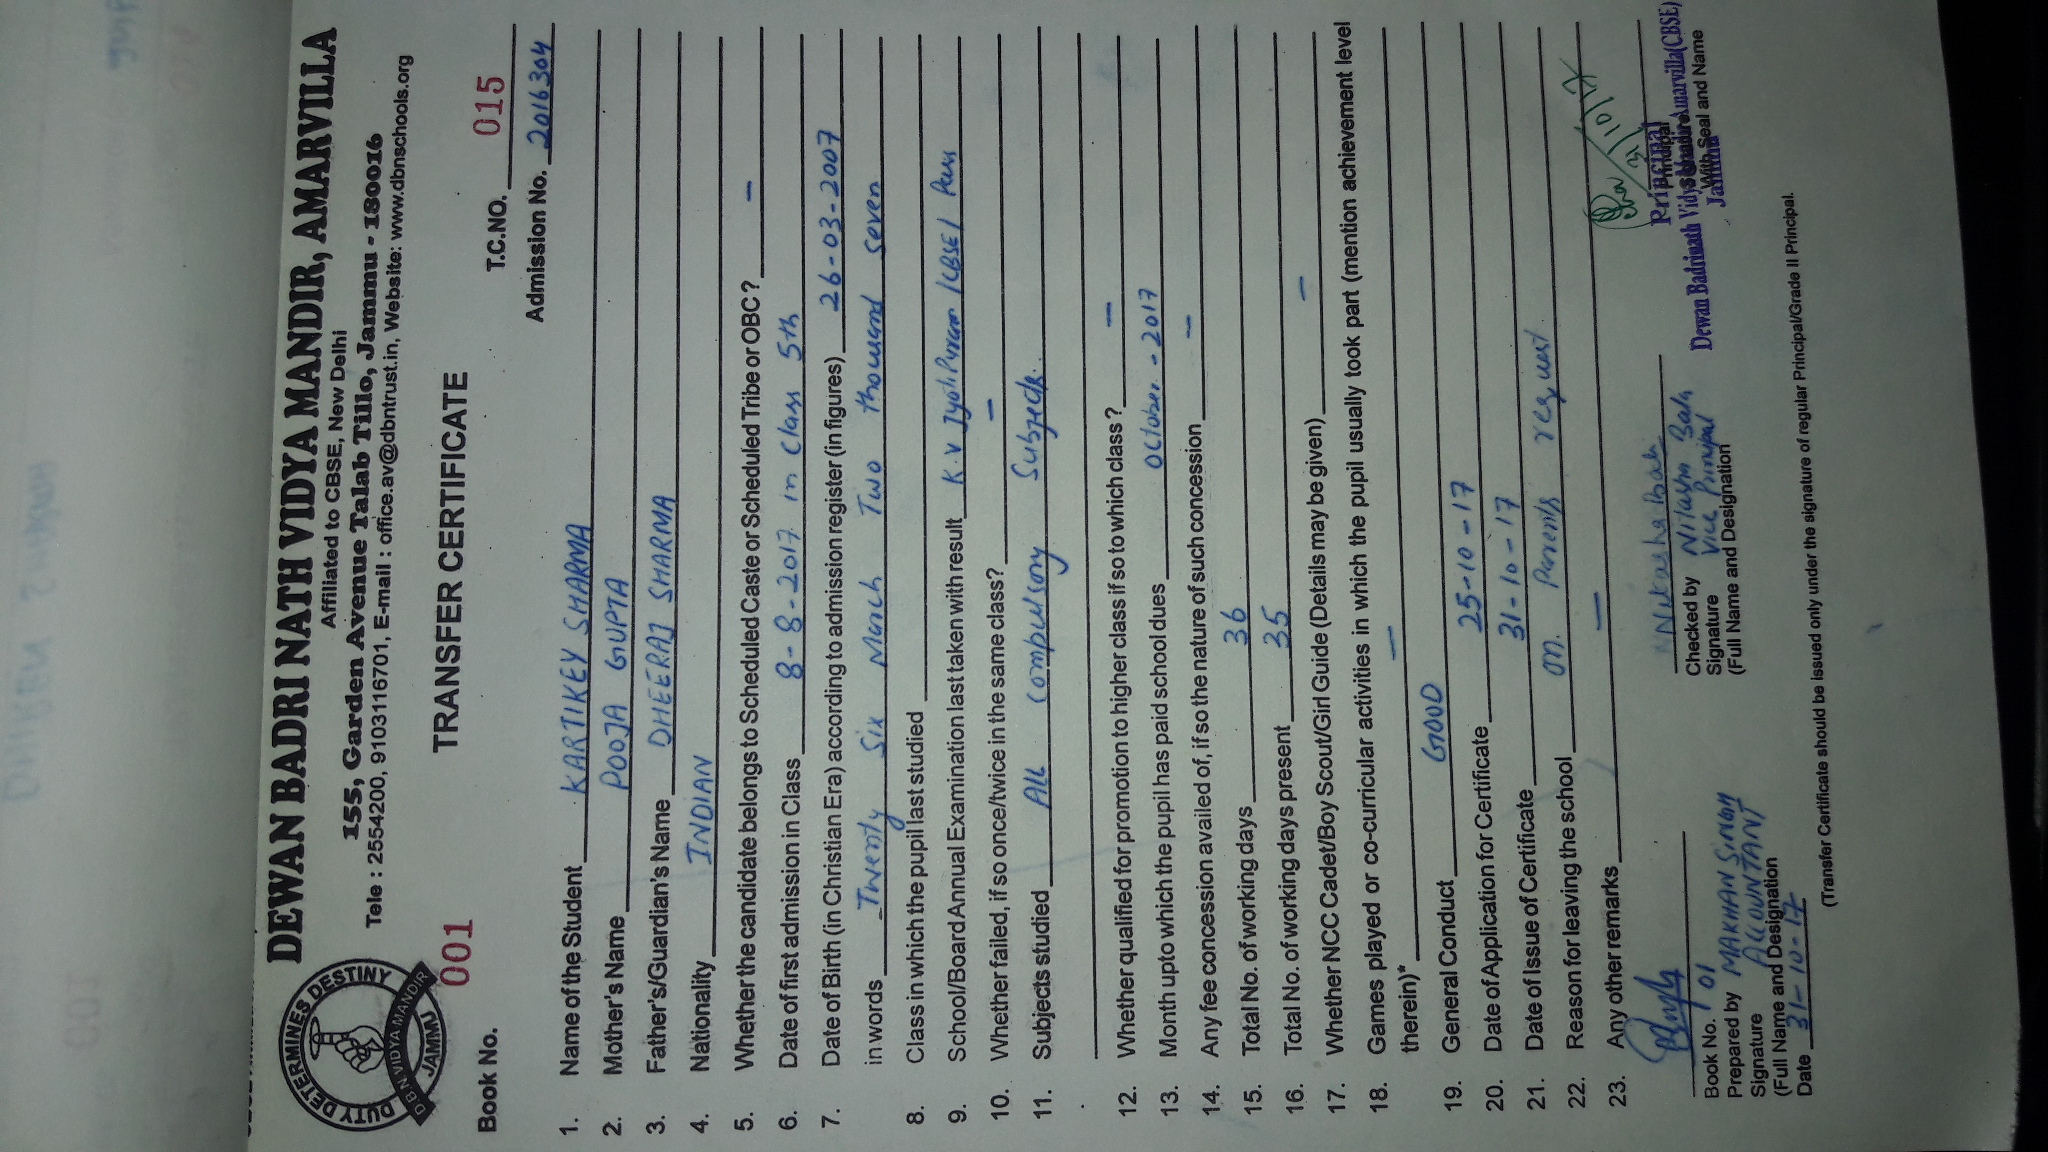 DEWAN BADRI NATH VIDYA MANDIR, AMARVILLA
Affiliated to CBSE, New Delhi
155, Garden Avenue Talab Tillo, Jammu - 180016
Tele : 2554200, 9103116701, E-mail : office.av@dbntrust.in, Website: www.dbnschools.org
DUTY DETERMINES DESTINY
DBN VIDYA MANDIR
JAMMU
TRANSFER CERTIFICATE
Book No. 001 T.C.NO. 015
Admission No. 2016304
1. Name of the Student KARTIKEY SHARMA
2. Mother's Name POOJA GUPTA
3. Father's/Guardian's Name DHEERAJ SHARMA
4. Nationality INDIAN
5. Whether the candidate belongs to Scheduled Caste or Scheduled Tribe or OBC? –
6. Date of first admission in Class 8-8-2017 in class 5th
7. Date of Birth (in Christian Era) according to admission register (in figures) 26-03-2007
in words Twenty Six March Two thousand seven
8. Class in which the pupil last studied
9. School/Board Annual Examination last taken with result K.V JyotiPuram /CBSE/ Pass
10. Whether failed, if so once/twice in the same class? –
11. Subjects studied ALL Compulsory Subjects.
12. Whether qualified for promotion to higher class if so to which class ? –
13. Month upto which the pupil has paid school dues October - 2017
14. Any fee concession availed of, if so the nature of such concession –
15. Total No. of working days 36
16. Total No. of working days present 35
17. Whether NCC Cadet/Boy Scout/Girl Guide (Details may be given) –
18. Games played or co-curricular activities in which the pupil usually took part (mention achievement level
therein)* –
19. General Conduct GOOD
20. Date of Application for Certificate 25-10-17
21. Date of Issue of Certificate 31-10-17
22. Reason for leaving the school on Parents request
23. Any other remarks –
31/10/17
Book No. 01
Prepared by MAKHAN SINGH
Signature ACCOUNTANT
(Full Name and Designation
Date 31-10-17
Checked by
Signature Vice Principal
(Full Name and Designation
Principal
With Seal and Name
Principal
Dewan Badrinath Vidya Mandir Amarvilla(CBSE)
Jammu
(Transfer Certificate should be issued only under the signature of regular Principal/Grade II Principal.